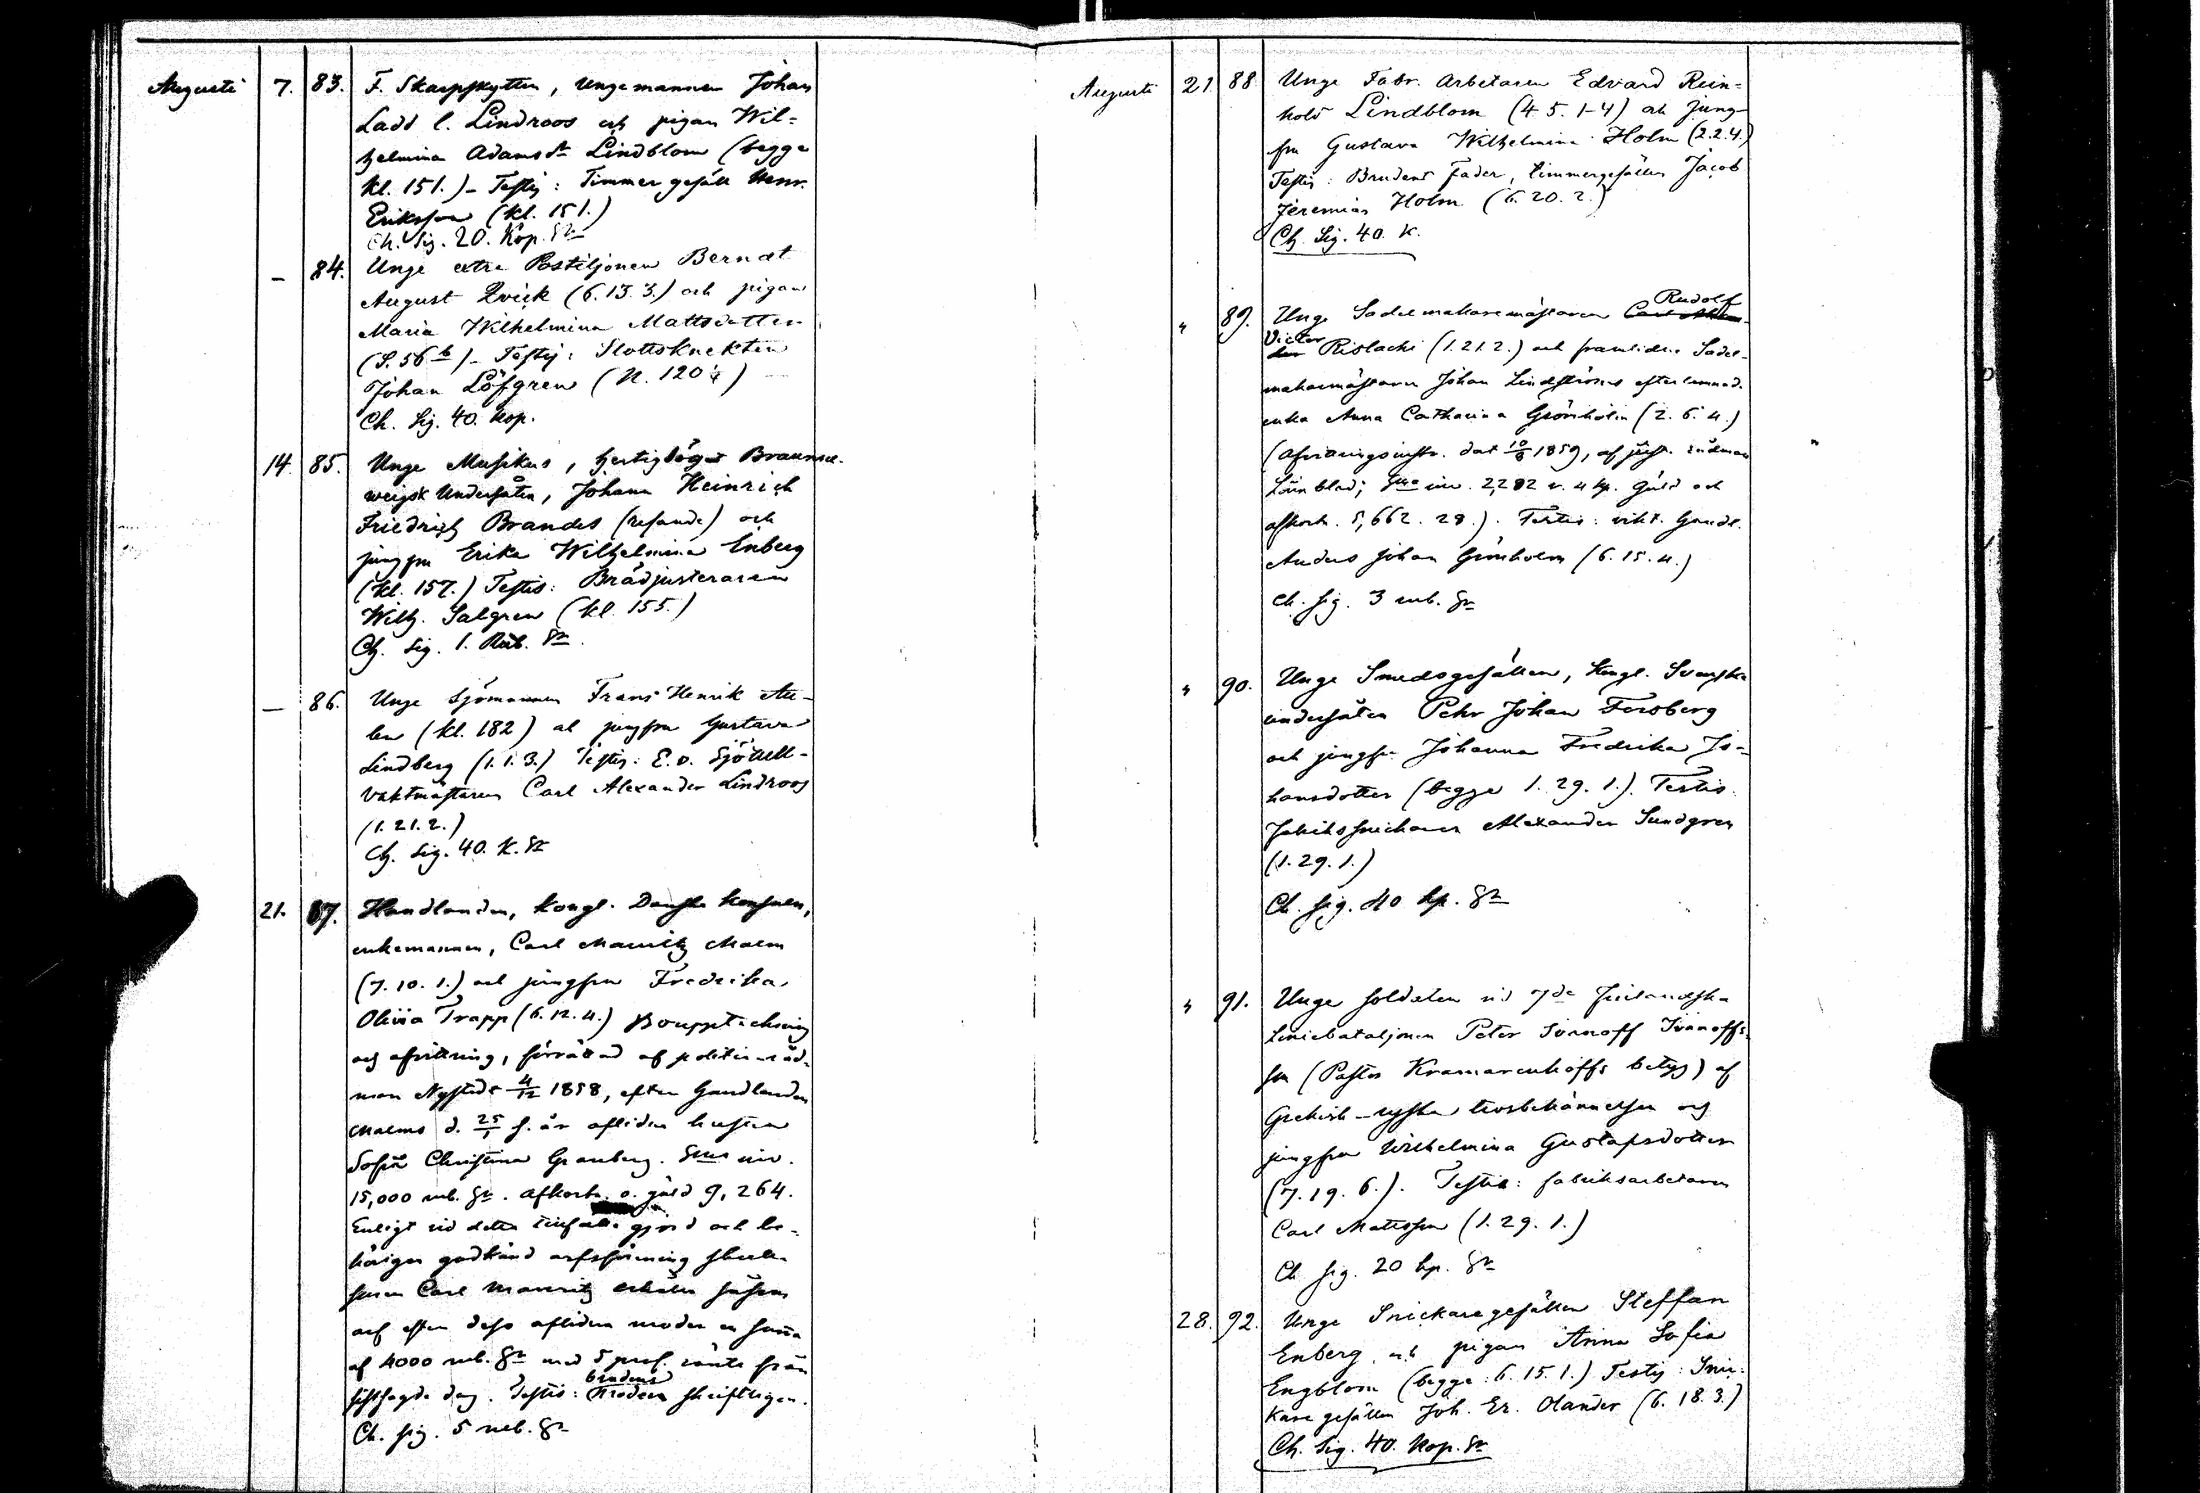 Augusti 7. 83. F. Skarpskytten, Ungemannen Johan
Ladd l. Lindroos och pigan Wil-
helmina Adamsdr Lindblom (begge
kl. 151.) - Testis: Timmergesäll Henr.
Eriksson (kl. 151.)
Ch. Sig. 20. Kop. Sr
— 84. Unge extra Postiljonen Berndt
August Qvick (6.13.3.) och pigan
Maria Wilhelmina Mattsdotter
(S. 56 b) - Testis: Slottsknekten
Johan Löfgren (N. 120
Ch. Sig. 40. Kop.
14. 85. Unge Musikus, hertigl Braunsch-
weigsk Undersåten, Johann Heinrich
Friedrich Brandes (resande) och
jungfru Erika Wilhelmina Enberg
(kl. 157.) Testis: Brädjusteraren
Wilh. Salgren (kl. 155.)
Ch. Sig. 1. Rub. Sr.
— 86. Unge Sjömannen Frans Henrik
(kl. 182) och jungfru Gustava
Lindberg (1.1.3.) Testis: E. o. Sjötull-
vaktmästaren Carl Alexander Lindroos
(1.21.2.)
Ch. Sig. 40. K. Sr
21. 87. Handlanden, Kongl. Danske Konsuln,
enkemannen, Carl Mauritz Malm
(7.10.1.) och jungfru Fredrika
Olivia Trapp (6.12.4.) Bouppteckning
och afvittring, förrättad af politie-råd-
man Nystedt 4/12 1858, efter handlanden
Malms d. 25/1 s. år aflidna hustru
Sofia Christina Granberg. inv.
15,000 rub. Sr. afkortn. o. gäld 9,264.
Enligt vid detta tillfälle gjord och be-
hörigen godkänd arfsförening skulle
sonen Carl Mauritz erhålla såsom
arf efter dess aflidna moder en summa
af 4000 rub. Sr med 5 proc. ränta från
sistsagde dag. Testis: brudens skriftligen.
Ch. sig. 5 rub. Sr
Augusti 21. 88. Unge Fabr. Arbetaren Edvard Rein-
hold Lindblom (4 5. 1-4) och jung-
fru Gustava Wilhelmina Holm (2.2.4.)
Testis: Brudens Fader, timmergesällen Jacob
Jeremias Holm. (6. 20. 2.)
Ch. Sig. 40. K.
" 89. Unge Sadelmakaremästaren Rudolf
Victor Rislachi (1.21.2.) och framlidne Sadel-
makaremästaren Johan Lindströms efterlemnade
enka Anna Catharina Grönholm (2. 6. 4.)
(Afvittringsinstr. dat 10/8 1859, af just. rådman
Lönnblad; inv. 2,282 r. 4 kp. Gäld och
afkort. 5,662. 28.). Testis: vikt. handl.
Anders Johan Grönholm (6. 15. 4.)
Ch. sig. 3 rub. Sr
" 90. Unge Smedsgesällen, Kongl. Svenska
undersåten Pehr Johan Forsberg
och jungfr. Johanna Fredrika Jo-
hansdotter (begge 1. 29. 1.). Testis
Fabrikssnickaren Alexander Sundgren
(1. 29. 1.)
Ch. sig. 40 kp. Sr
" 91. Unge soldaten vid 7de Finlandska
Liniebataljonen Peter Ivanoff Ivanoffs-
son (Pastor Kramarenkoffs betyg) af
Grekisk-ryska trosbekännelsen och
jungfru Wilhelmina Gustafsdotter
(7. 19. 6.). Testis: fabriksarbetaren
Carl Mattsson (1. 29. 1.)
Ch. sig. 20 kp. Sr
28. 92. Unge Snickaregesällen Steffan
Enberg och pigan Anna Sofia
Engblom (begge: 6. 15. 1.) Testis: Snic-
kare gesällen Joh. Er. Olander (6. 18. 3.)
Ch. Sig. 40. Kop. Sr